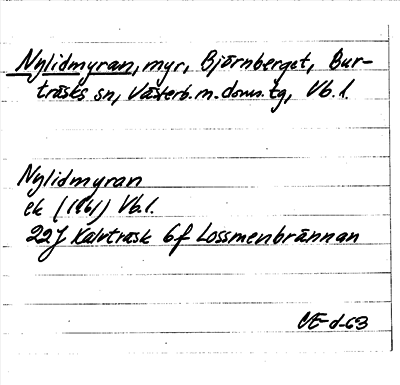 Nylidmyran, myr, Björnberget, Bur-
träsks sn, Västerb. m. doms. tg, Vb. l.
Nylidmyran
ek (1961) Vb. l.
22J Kalvträsk 6f Lossmenbrännan
CE-d-63